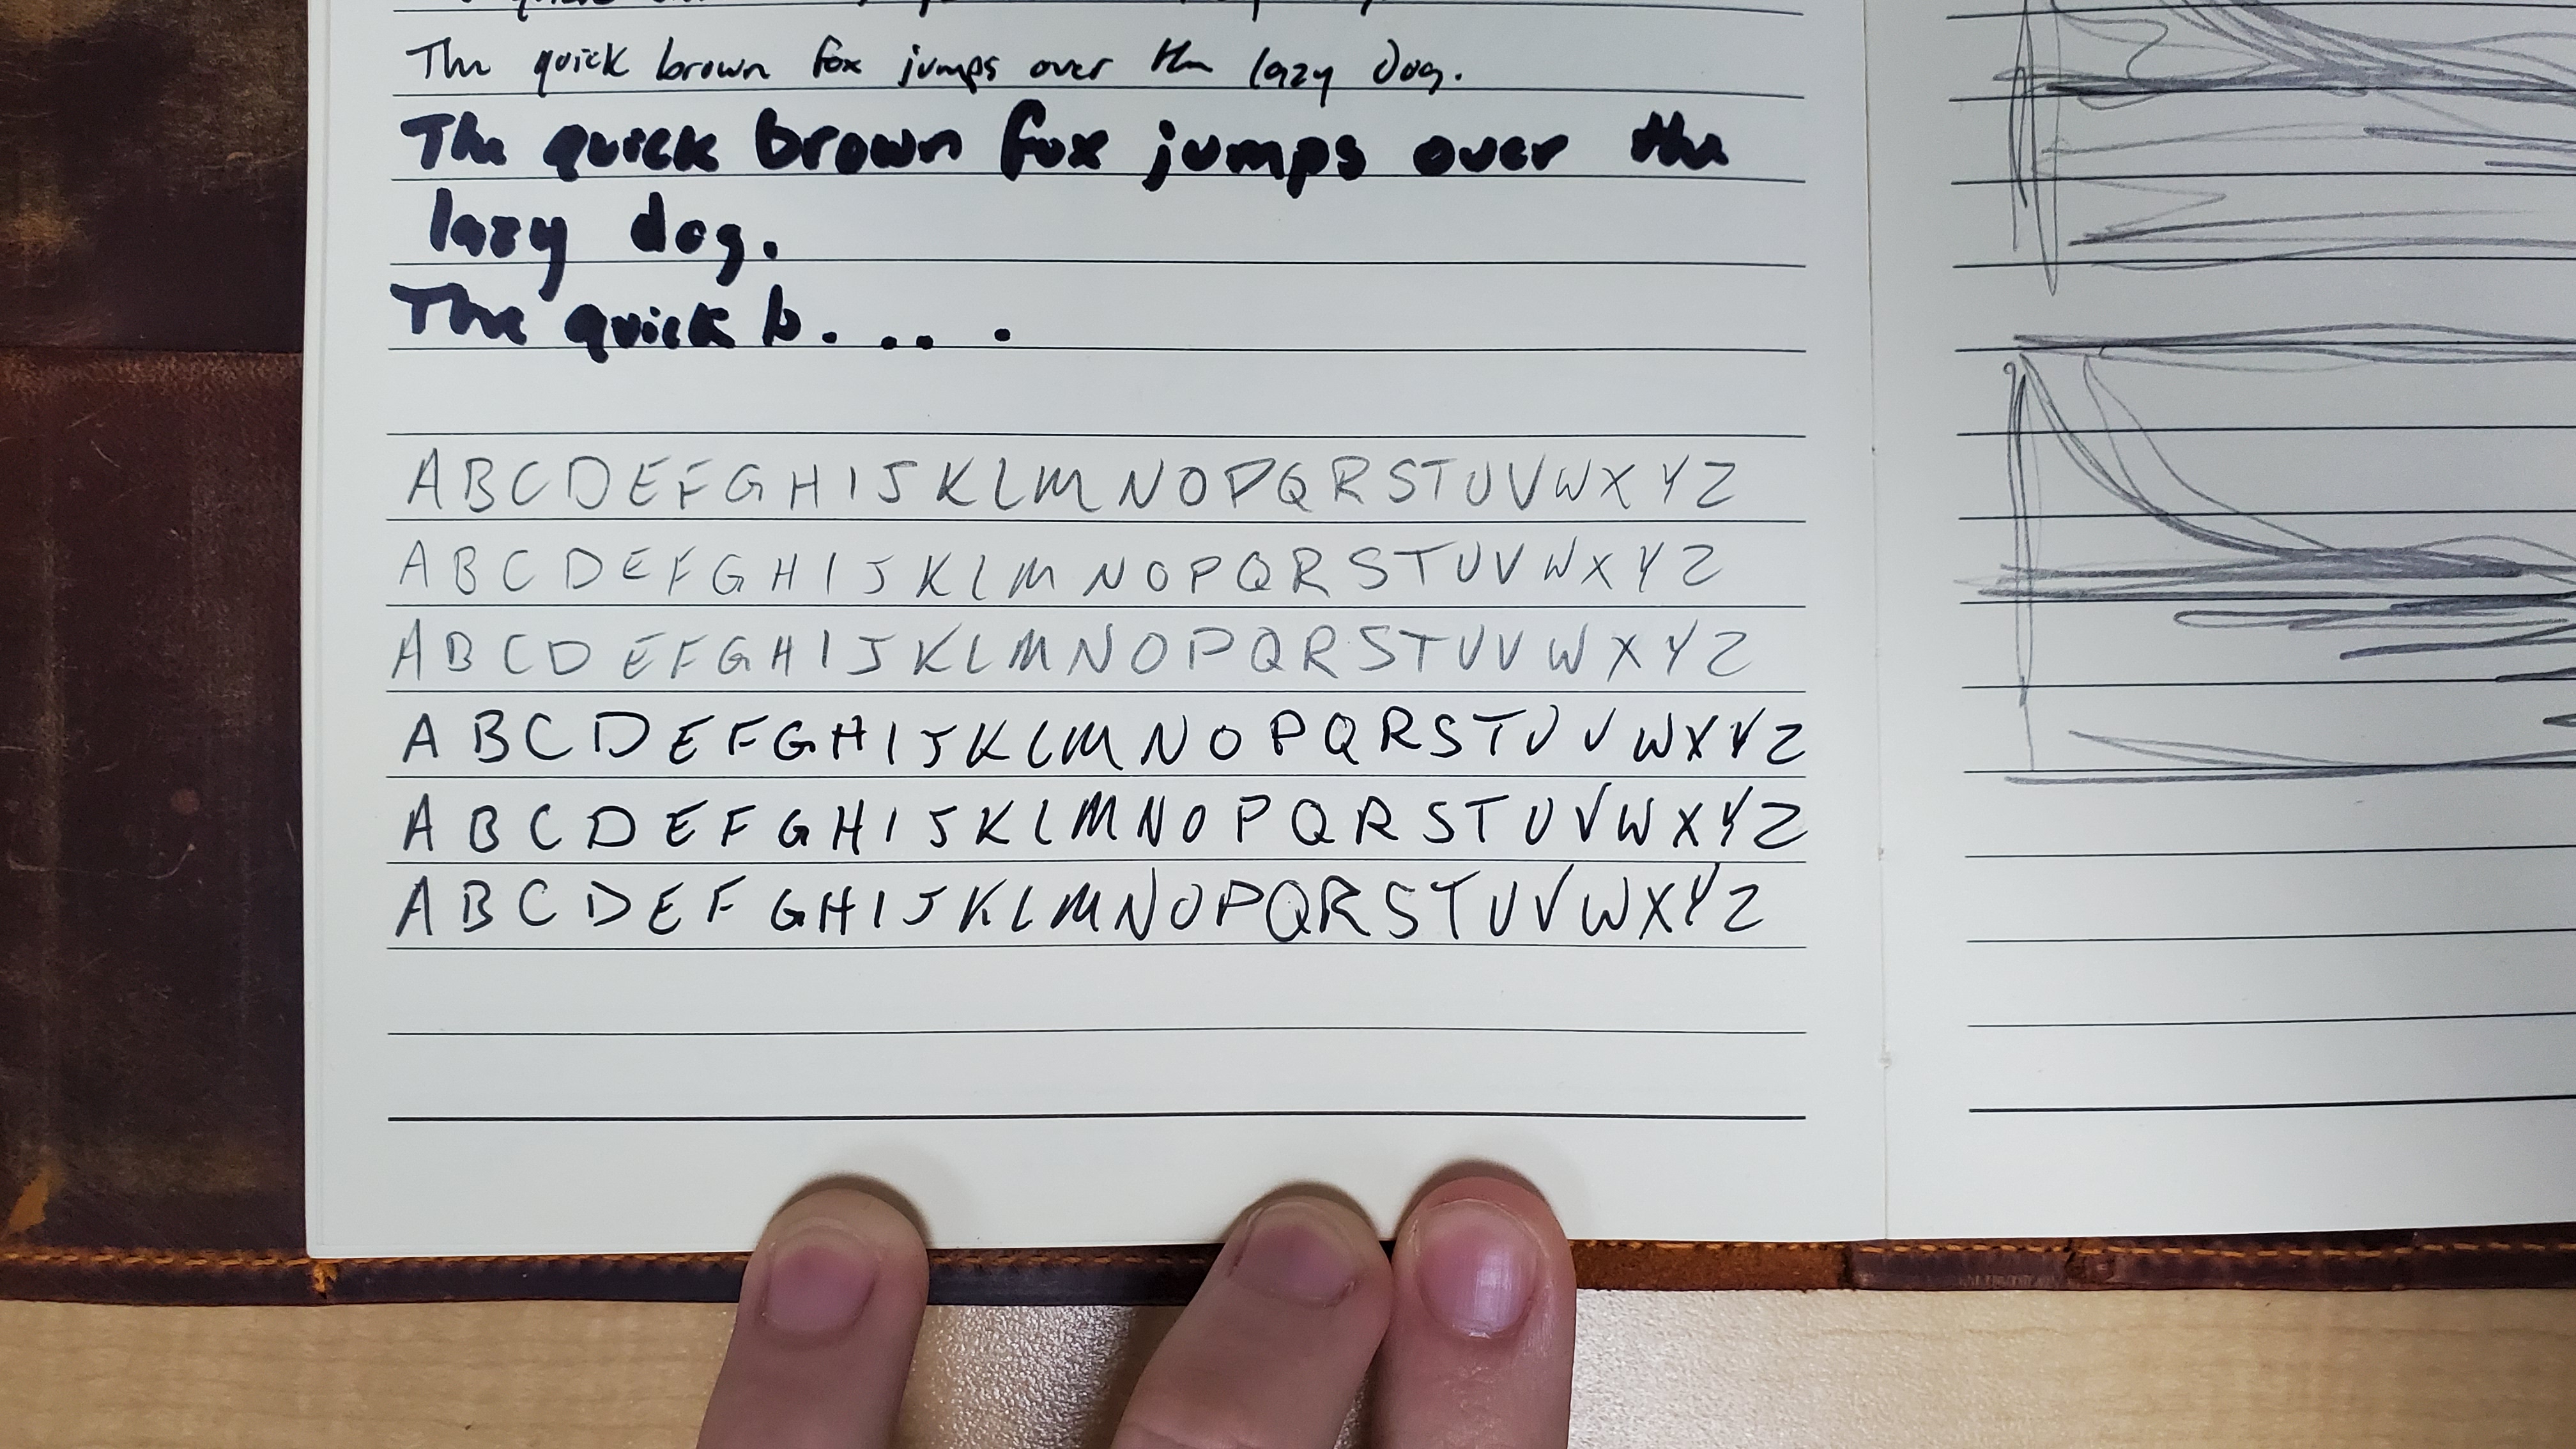 The quick brown fox jumps over the lazy dog.
The quick brown fox jumps over the
lazy dog.
The quick b. . . . .
A B C D E F G H I J K L M N O P Q R S T U V W X Y Z
A B C D E F G H I J K L M N O P Q R S T U V W X Y Z
A B C D E F G H I J K L M N O P Q R S T U V W X Y Z
A B C D E F G H I J K L M N O P Q R S T U V W X Y Z
A B C D E F G H I J K L M N O P Q R S T U V W X Y Z
A B C D E F G H I J K L M N O P Q R S T U V W X Y Z